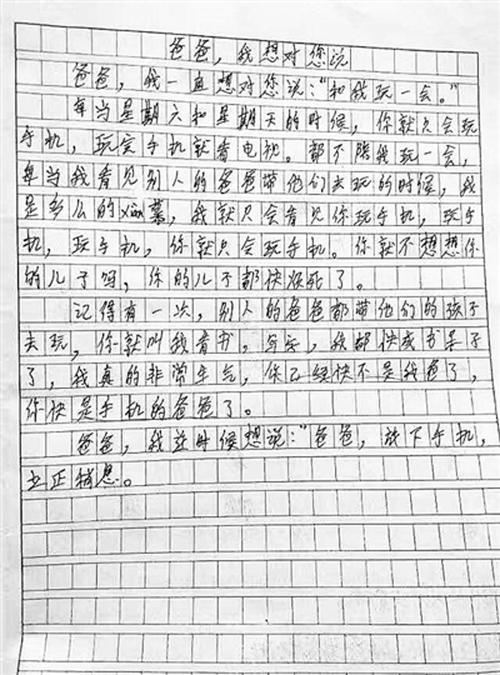 爸爸，我想对您说
爸爸，我一直想对您说："和我玩一会。"
每当星期六和星期天的时候，你就只会玩
手机，玩完手机就看电视。都不陪我玩一会，
每当我看见别人的爸爸带他们去玩的时候，我
是多么的羡慕，我就只会看见你玩手机，玩手
机，玩手机，你就只会玩手机。你就不想想你
的儿子吗，你的儿子都快烦死了。
记得有一次，别人的爸爸都带他们的孩子
去玩，你就叫我看书，写字，我都快成书呆子
了，我真的非常生气，你已经快不是我爸了，
你快是手机的爸爸了。
爸爸，我这时候想说："爸爸，放下手机，
立正稍息。